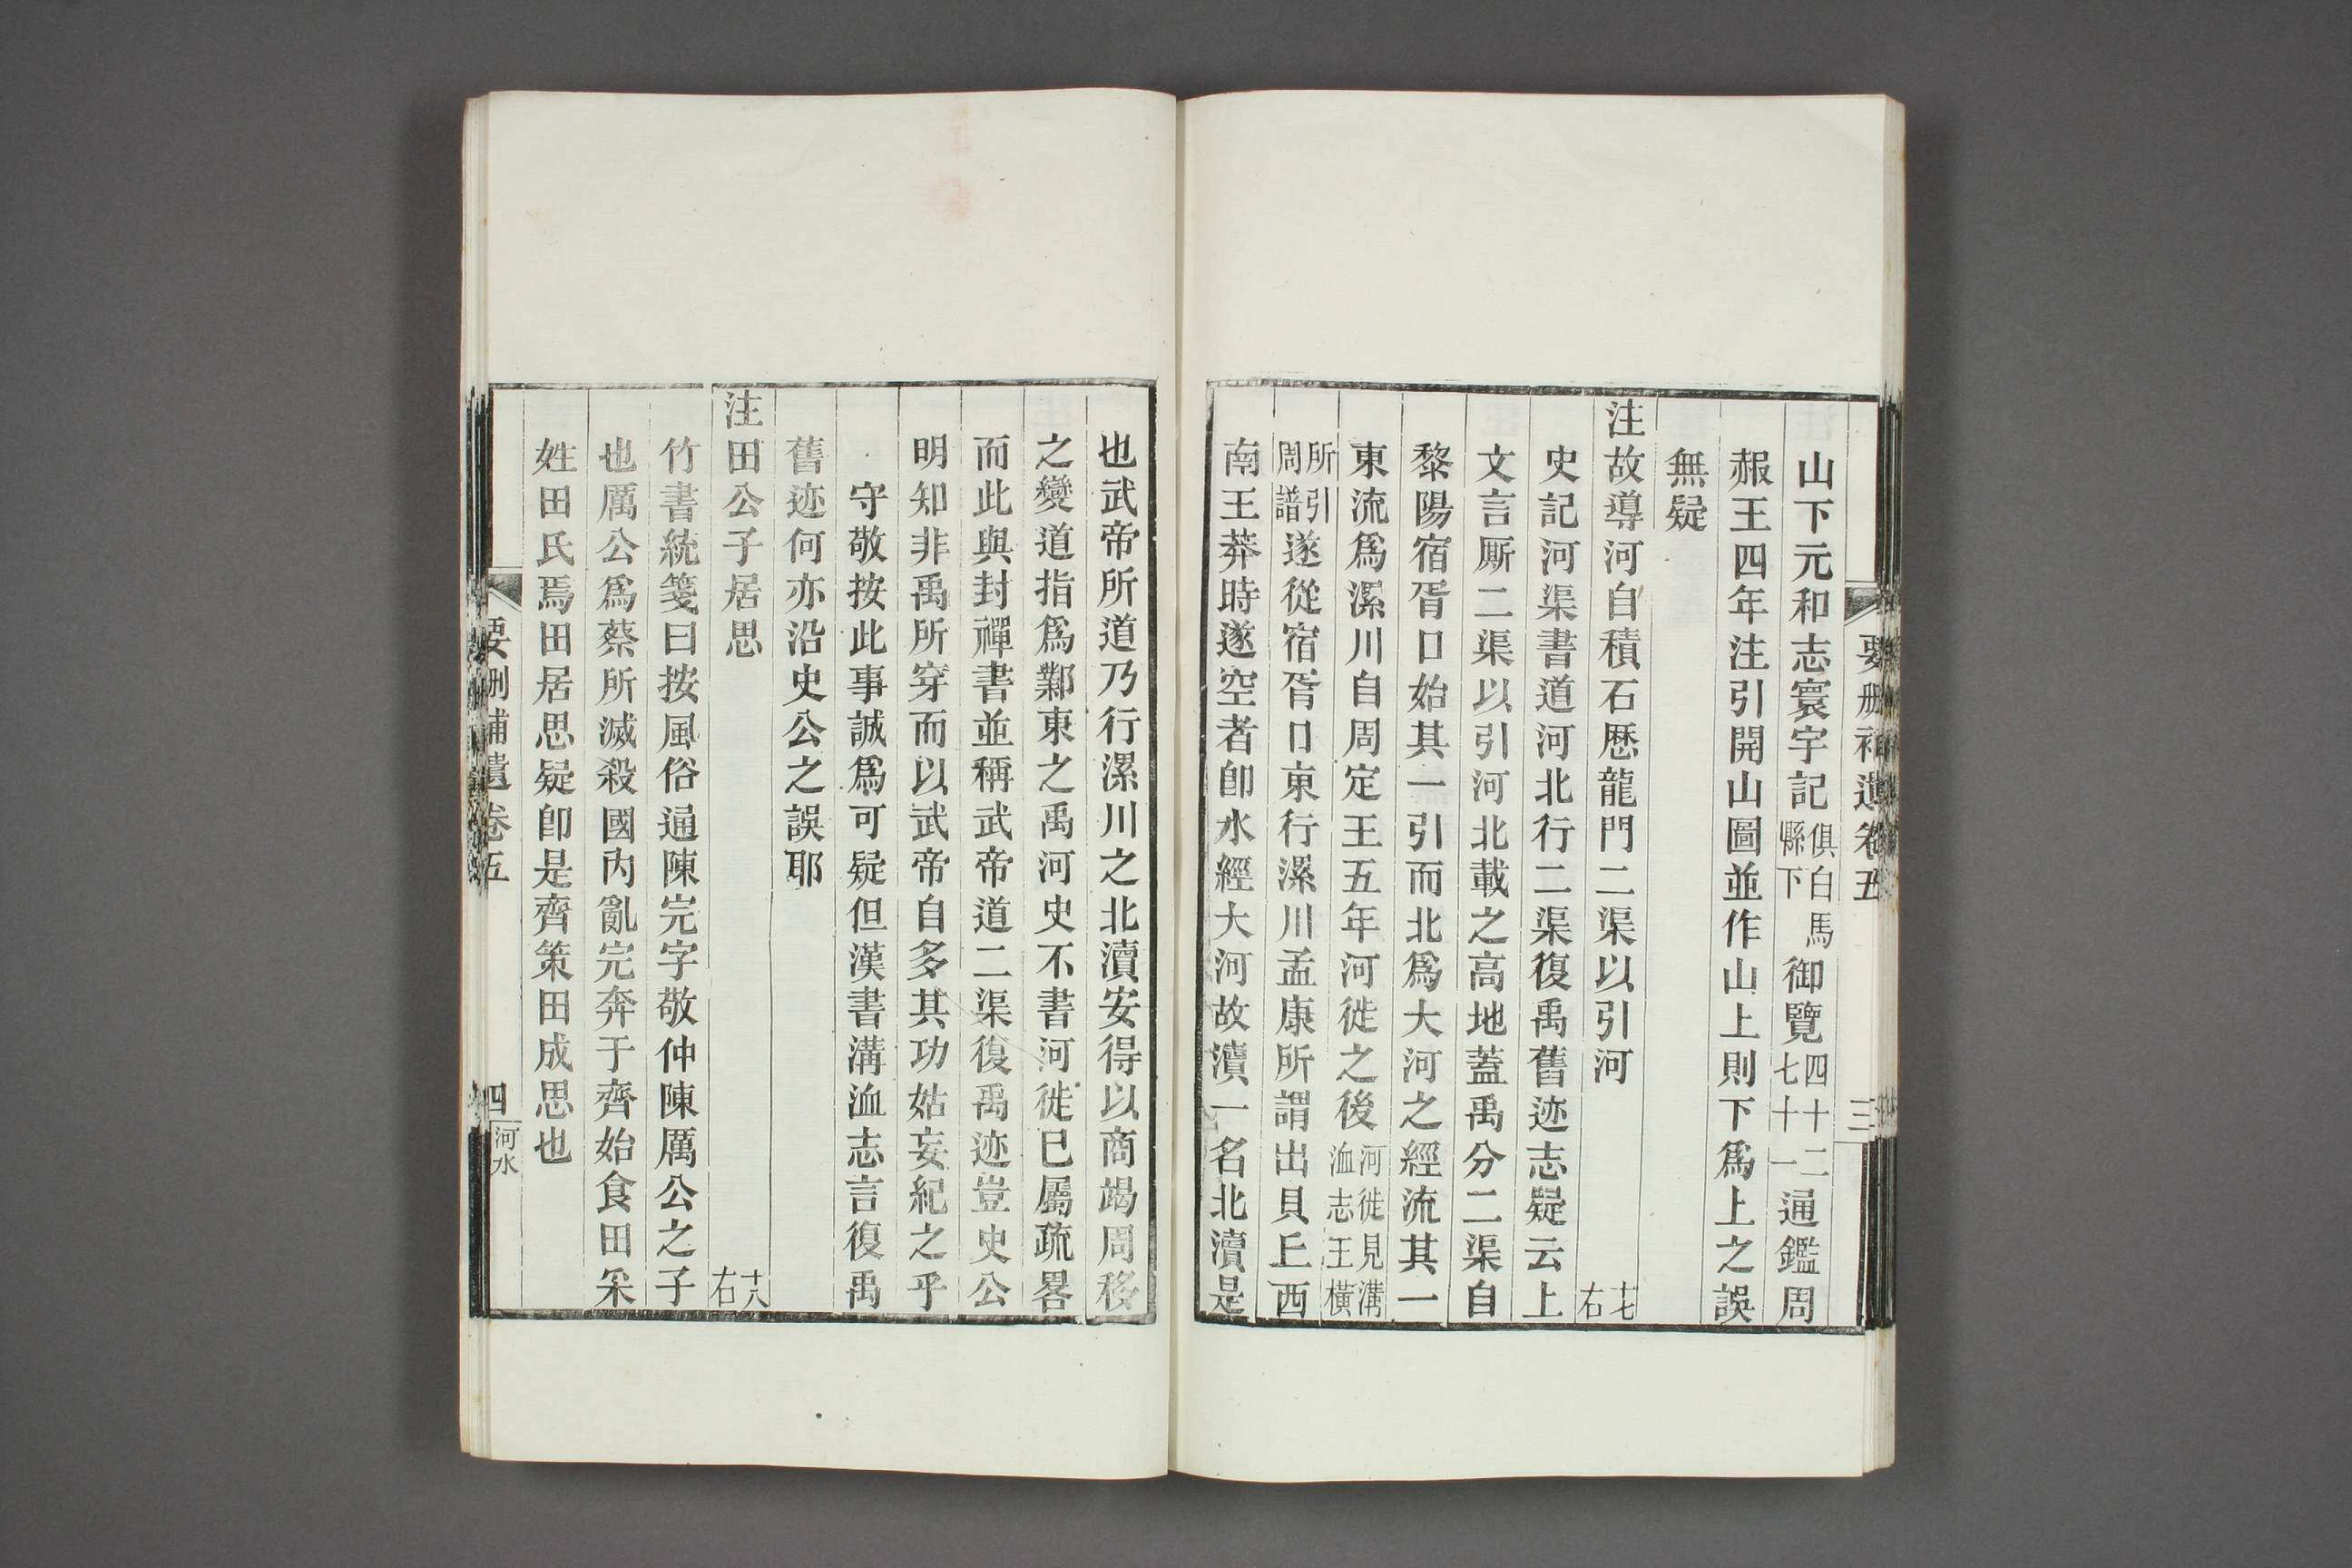 要刪補遺卷五
三
山下元和志寰宇記俱白馬縣下御覽四十二七十一通鑑周
赧王四年注引開山圖並作山上則下爲上之誤
無疑
注故導河自積石歷龍門二渠以引河十七右
史記河渠書道河北行二渠復禹舊迹志疑云上
文言厮二渠以引河北載之高地蓋禹分二渠自
黎陽宿胥口始其一引而北爲大河之經流其一
東流爲漯川自周定王五年河徙之後河徙見溝洫志王橫
所引周譜遂從宿胥口東行漯川孟康所謂出貝丘西
南王莽時遂空者卽水經大河故瀆一名北瀆是
也武帝所道乃行漯川之北瀆安得以商竭周移
之變道指爲鄴東之禹河史不書河徙已屬疏畧
而此與封禪書並稱武帝道二渠復禹迹豈史公
明知非禹所穿而以武帝自多其功姑妄紀之乎
守敬按此事誠爲可疑但漢書溝洫志言復禹
舊迹何亦沿史公之誤耶
注田公子居思十八右
竹書統箋曰按風俗通陳完字敬仲陳厲公之子
也厲公爲蔡所滅殺國內亂完奔于齊始食田采
姓田氏焉田居思疑卽是齊策田成思也
要刪補遺卷五
四
河水